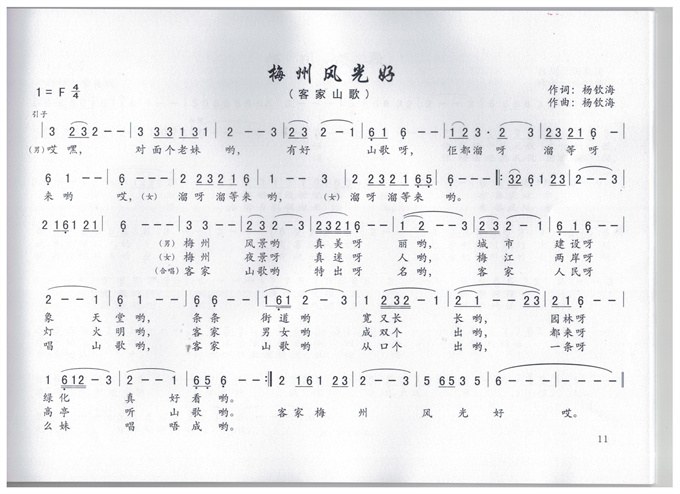 梅州风光好
1= F 4/4
（客家山歌）
作词：杨钦海
作曲：杨钦海
引子
3 232 2 - - | 3 3 3 3 1 3 1 | 2 - - 3 | 2 3 2 - - | 6 1 6 - - | 1 2 3 · 2 3 | 2 3 2 1 6 |
(男)哎嘿， 对面个老妹 哟， 有好 山歌呀， 佢都溜呀 溜等呀
6 1 - - | 6 - - - | 2 · 3 2 3 2 1 6 | 6 1 - - | 2 · 3 2 1 2 6 5 | 6 - - - |: 3 2 6 1 2 3 | 2 - - 3 |
来哟 哎，(女) 溜呀溜等来 哟，(女)溜呀溜等来 哟。
2 1 6 1 2 1 | 2 - - 3 | 2 3 2 - 3 | 2 3 2 1 6 - | 1 2 - 3 | 2 3 2 - - | 6 1 6 - - |
(男) 梅州 风景哟 真美呀 丽哟， 城市 建设呀
(女) 梅州 夜景呀 真迷呀 人哟， 梅江 两岸呀
(合唱) 客家 山歌哟 特出呀 名哟， 客家 人民呀
2 - - 1 | 6 - - 6 | 2 1 6 1 - | 1 2 3 2 2 - | 2 - - 2 3 | 5 2 3 - - |
象 天堂哟， 条条 街道哟 宽又长 长哟， 园林呀
灯 火明哟， 客家 男女哟 成双个 出哟， 都来呀
唱 山歌哟， 客家 山歌哟 从口个 出哟， 一条呀
1 6 1 2 - 3 | 2 - - 3 | 2 - 6 5 | 6 - - - :| 2 1 6 1 2 3 | 2 - - 3 | 5 6 5 3 5 | 6 - - - | 6 - - - |
绿化 真好看哟。
高亭 听山歌哟。 客家梅 州 风光好 哎。
么妹 唱唔成哟。
11